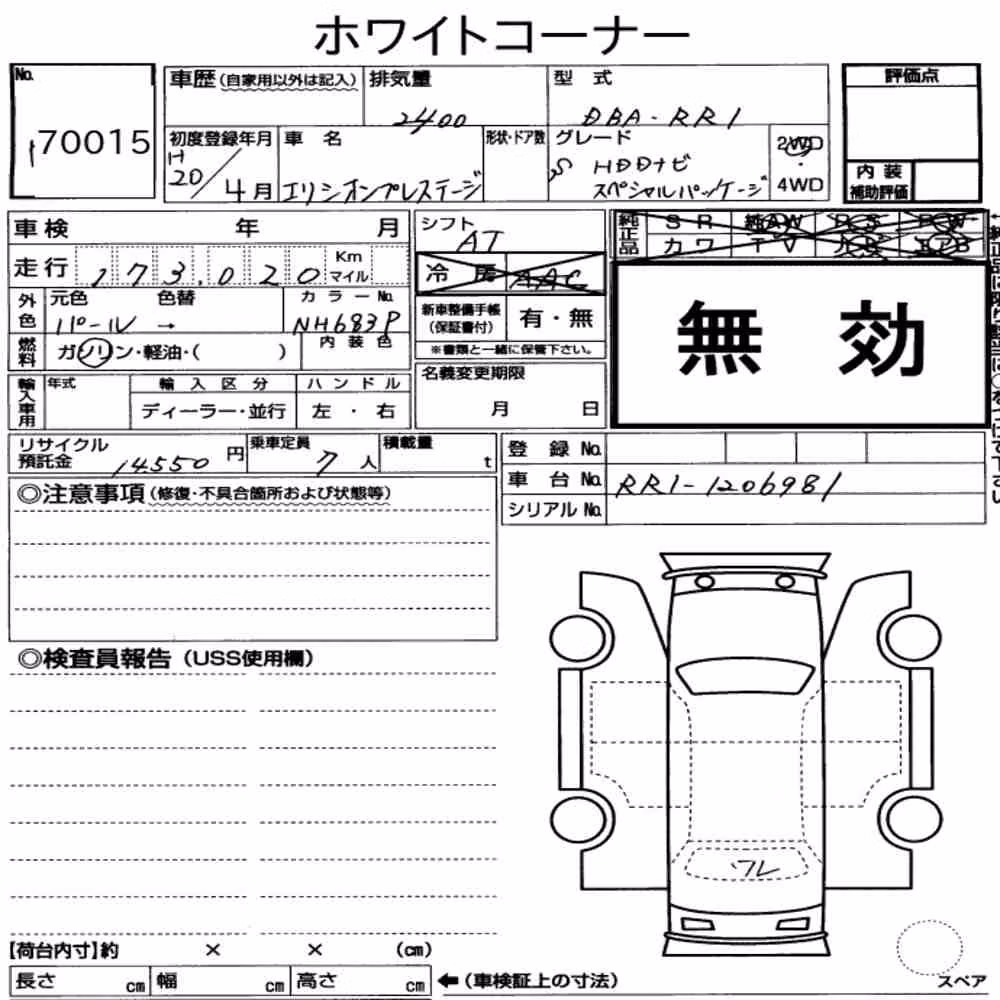 ホワイトコーナー
No.
70015
車歴 (自家用以外は記入)
排気量
2400
型 式
DBA-RR1
評価点
初度登録年月
H
20/4月
車 名
エリシオンプレステージ
形状・ドア数
グレード
S HDDナビ
スペシャルパッケージ
2WD
・
4WD
内 装
補助評価
車検 年 月
走行 173,020 Km
マイル
シフト
AT
冷 房 AAC
純正品
SR 純AW PS PW
カワ TV
外色
元色 色替
パール →
カラーNo.
NH683P
新車整備手帳
(保証書付)
有・無
※書類と一緒に保管下さい。
無 効
燃料
ガソリン・軽油・( )
内装色
輸入車用
年式
輸入区分
ディーラー・並行
ハンドル
左 ・ 右
名義変更期限
月 日
リサイクル
預託金 14550 円
乗車定員
7 人
積載量
t
登 録 No.
車 台 No. RR1-1206981
シリアル No.
◎注意事項 (修復・不具合箇所および状態等)
◎検査員報告 (USS使用欄)
ワレ
【荷台内寸】約 × × (cm)
長さ cm 幅 cm 高さ cm ←(車検証上の寸法)
スペア